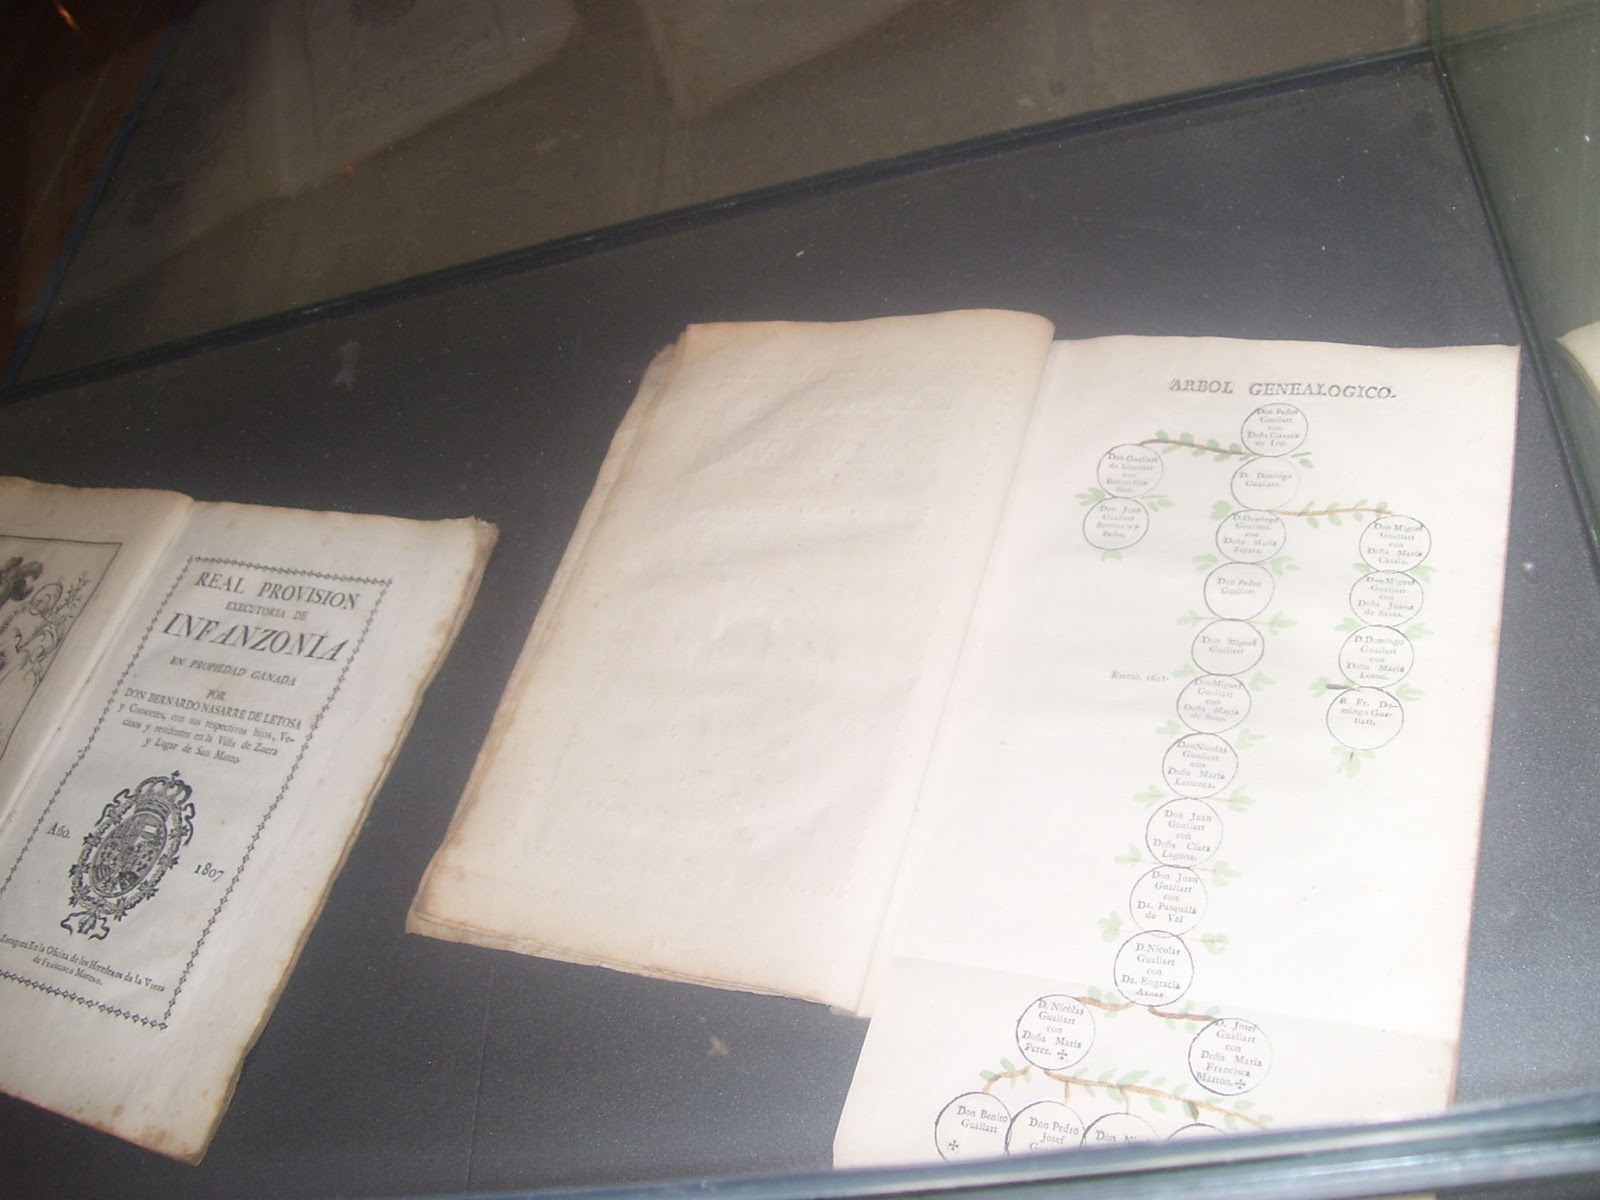 REAL PROVISION
EXECUTORIA DE
INFANZONIA
EN PROPIEDAD GANADA
POR
DON BERNARDO NASARRE DE LETOSA
y Consortes, con sus respectivos hijos, Ve-
cinos y residentes en la Villa de Zuera
y Lugar de San Mateo.
Año. 1807
Zaragoza En la Oficina de los Herederos de la Viuda
de Francisco Moreno.
ARBOL GENEALOGICO.
Don Pedro
Guallart
con
Doña
de Lop.
Don Guallart
de Guallart
con
Bernardina
D. Domingo
Guallart.
Don Juan
Guallart
D. Domingo
Guallart.
con
Doña Maria
Zapata.
Don Miguel
Guallart
con
Doña Maria
Don Pedro
Guallart
Don Miguel
Guallart
con
Doña Juana
de
Don Miguel
Guallart
D. Domingo
Guallart
con
Doña Maria
1647.
Don Miguel
Guallart
con
Doña Maria
de
B. Fr. Do-
mingo Gua-
llart.
Don Nicolas
Guallart
con
Doña Maria
Don Juan
Guallart
con
Doña Clara
Laguna.
Don Juan
Guallart
con
Da. Pasquala
de Val
D. Nicolas
Guallart
con
Da. Engracia
D. Nicolas
Guallart
con
Doña Maria
Perez.
D. Josef
Guallart
con
Doña Maria
Francisca
Marton.
Don Benito
Guallart
Don Pedro
Josef